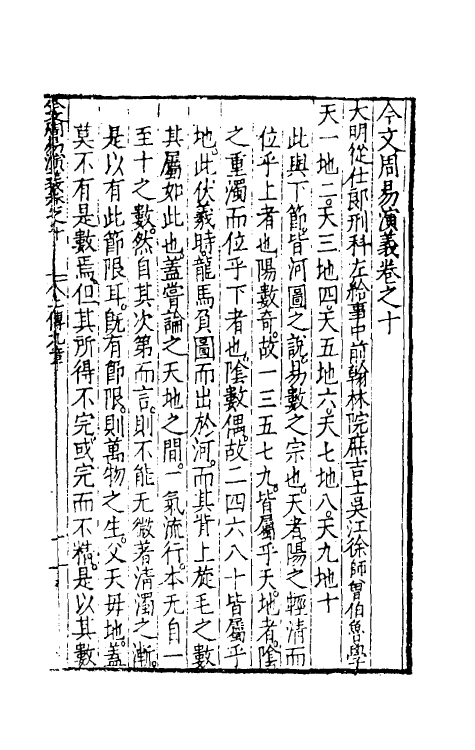 今文周易演義卷之十
大明從仕郎刑科左給事中前翰林院庶吉士吳江徐師曾伯魯學
天一地二。天三地四。天五地六。天七地八。天九地十
此與下節。皆河圖之說。易數之宗也。天者陽之輕清而
位乎上者也。陽數奇。故一三五七九。皆屬乎天。地者。陰
之重濁而位乎下者也。陰數偶。故二四六八十皆屬乎
地。此伏羲時。龍馬負圖而出於河。而其背上旋毛之數
其屬如此也。蓋嘗論之。天地之間。一氣流行。本无自一
至十之數。然自其次第而言。則不能无微著清濁之漸。
是以有此節限耳。旣有節限。則萬物之生。父天母地。蓋
莫不有是數焉。但其所得不完。或完而不精。是以其數
今文周易演義卷之十 上傳九章 一